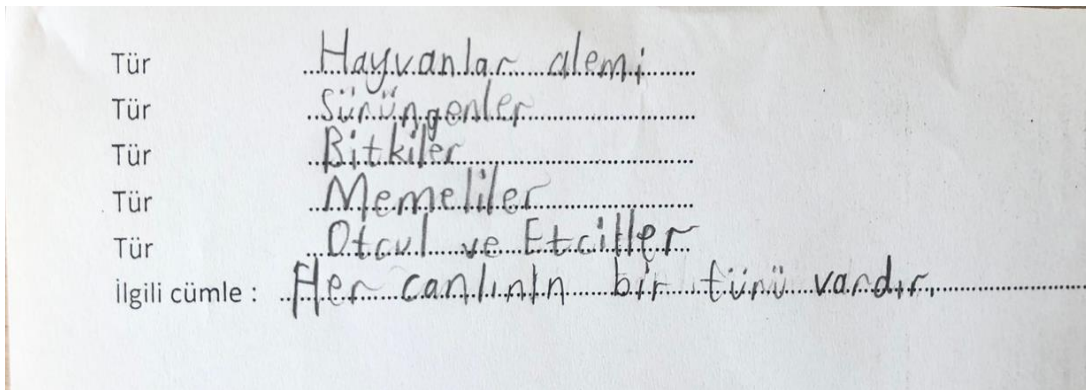 Tür Hayvanlar alemi
Tür Sürüngenler
Tür Bitkiler
Tür Memeliler
Tür Otcul ve Etciller
İlgili cümle : Her canlının bir türü vardır.